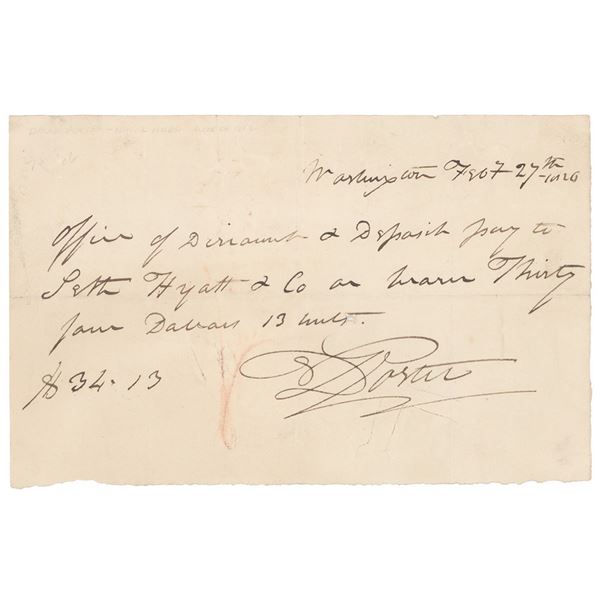 Washington Feby 27th 1820
Office of Discount & Deposit pay to
Seth Hyatt & Co or bearer Thirty
four Dollars 13 cents.
$34.13
D Porter